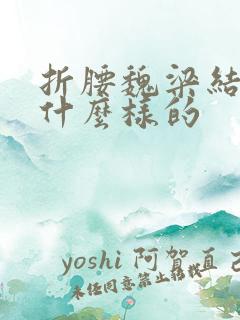 折腰魏梁結
什麼樣的
yoshi 阿賀直己
未任同意禁止轉載